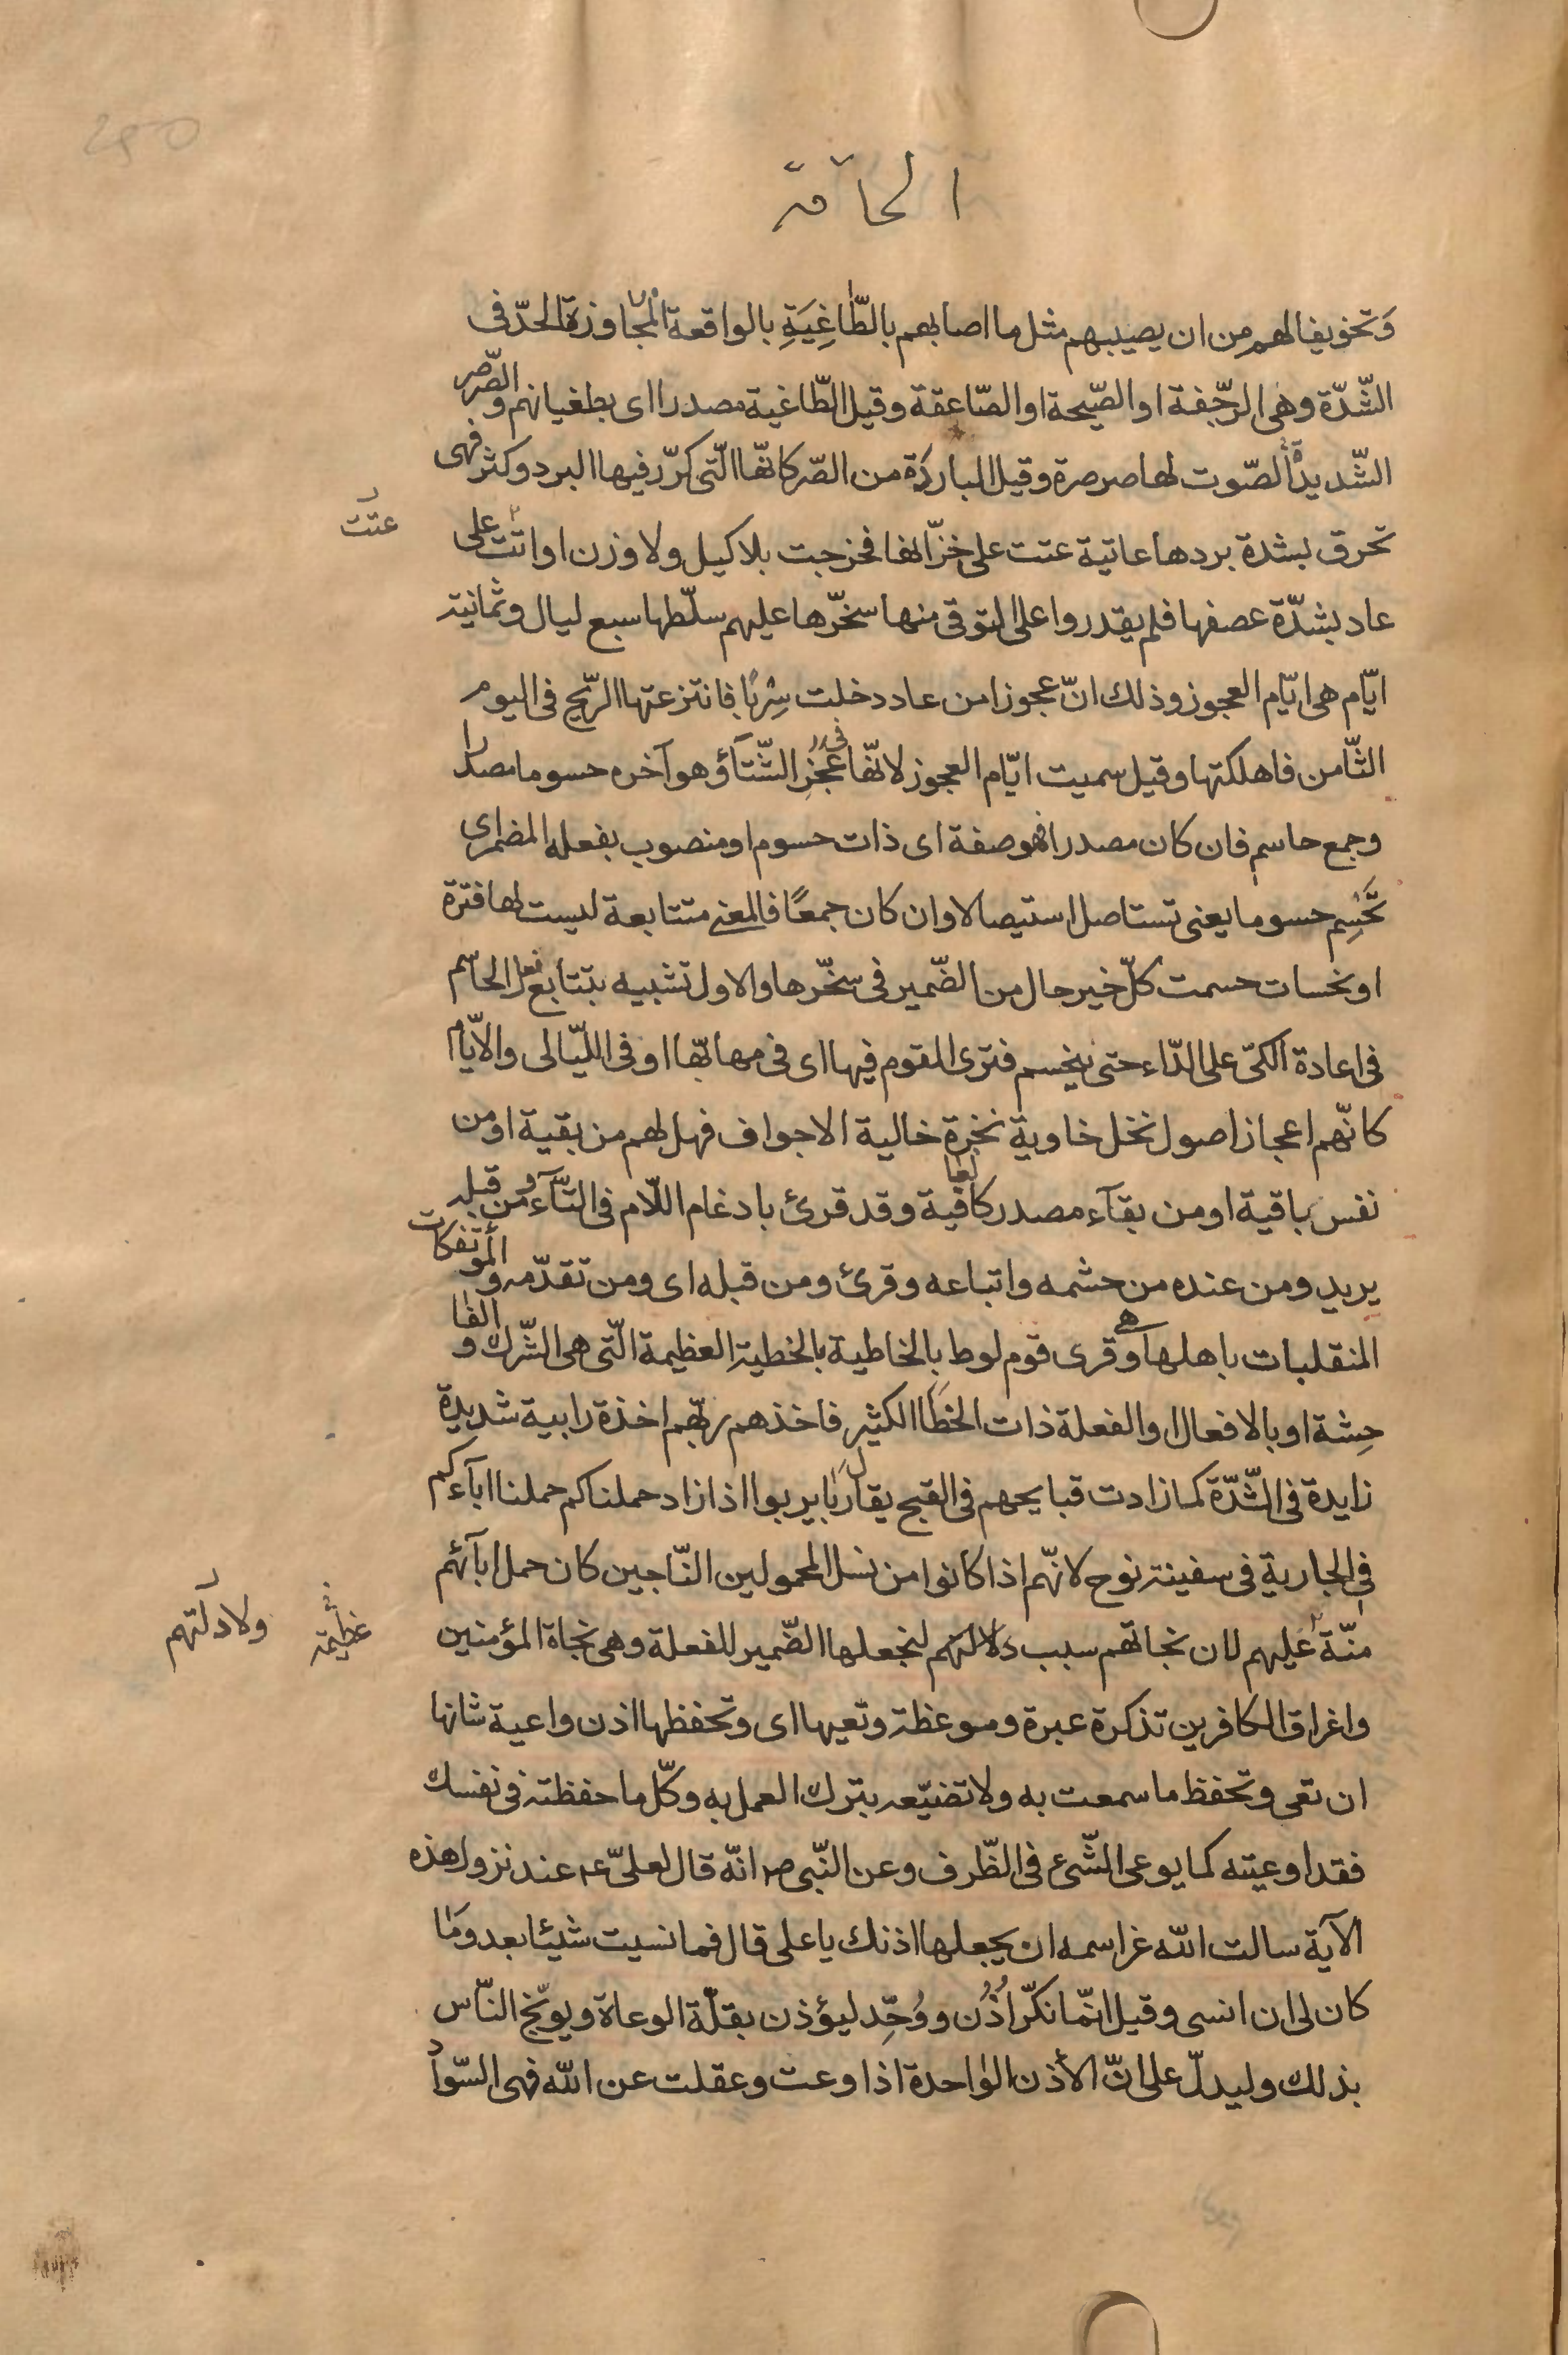 الحاقّة
وَتخويفا لهم من ان يصيبهم مثل ما اصابهم بالطّاغِيَةِ بالواقعة المجاوزة الحدّ فى
الشّدّة وهى الرجّفة او الصّيحة او الصّاعقة وقيل الطّاغية مصدر اى بطغيانهم والصّرصر
الشّديدة الصّوت لها صرصرة وقيل الباردَة من الصّر كانّها الّتى كرّر فيها البرد وكثر فهى
تحرق بشدة بردها عاتية عتت على خزّانها فخرجت بلا كيل ولا وزن او اتت على
عتت
عاد بشدّة عصفها فلم يقدروا على التوقى منها سخّرها عليهم سلّطها سبع ليال وثمانية
ايّام هى ايّام العجوز وذلك انّ عجوزا من عاد دخلت سِربًا فانتزعتها الرّيح فى اليوم
الثّامن فاهلكتها وقيل سميت ايّام العجوز لانّها فى عَجُزِ الشّتآء وهو آخره حسوما مصدرا
وجمع حاسم فان كان مصدرا فهو صفة اى ذات حسوم او منصوب بفعله المضمر اى
تَحْسِم حسوما يعنى تستاصل استيصالا وان كان جمعًا فالمعنى متتابعة ليست لها فترة
او نحسات حسمت كلّ خير حال من الضّمير فى سخّرها والاول تشبيه بتتابع فعل الحاسم
فى اعادة الكىّ على الدّاء حتى ينحسم فترى القوم فيها اى فى مهابّها او فى اللّيالى والايّام
كانّهم اعجاز اصول نخل خاوية نخرة خالية الاجواف فهل لهم من بقية او من
نفس باقية او من بقآء مصدر كالعافية وقد قرئ بادغام اللّام فى التّآء ومن قبله
يريد ومن عنده من حشمه واتباعه وقرئ ومن قبله اى ومن تقدّمه والمؤتفكات
المنقلبات باهلها وهى قرى قوم لوط بالخاطية بالخطية العظيمة الّتى هى الشّرك والفا
حِشة او بالافعال او الفعلة ذات الخطَا الكثير فاخذهم ربّهم اخذة رابية شديدة
زايدة فى الشّدّة كما زادت قبايحهم فى القبح يقال ربا يربوا اذا زاد حملناكم حملنا ابآءكم
فى الجارية فى سفينة نوح لانّهم اذا كانوا من نسل المحمولين النّاجين كان حمل ابآئهم
منّة عليهم لان نجاتهم سبب دلالتهم لنجعلها الضّمير للفعلة وهى نجاة المؤمنين
عظيمة
ولادتهم
واغراق الكافرين تذكرة عبرة وموعظة وتعيها اى وتحفظها اذن واعية شانها
ان تعى وتحفظ ما سمعت به ولا تضيّعه بترك العمل به وكلّ ما حفظته فى نفسك
فقد اوعيته كما يوعى الشّىء فى الظّرف وعن النّبى ص انّه قال لعلىّ ع عند نزول هذه
الآية سالت الله عز اسمه ان يجعلها اذنك يا على قال فما نسيت شيئا بعد وَما
كان لى ان انسى وقيل انّما نكّر اُذُن ووُحّد ليؤذن بقلّة الوعاة ويوبّخ النّاس
بذلك وليدلّ على انّ الأذن الواحدة اذا وعت وعقلت عن الله فهى السّواد